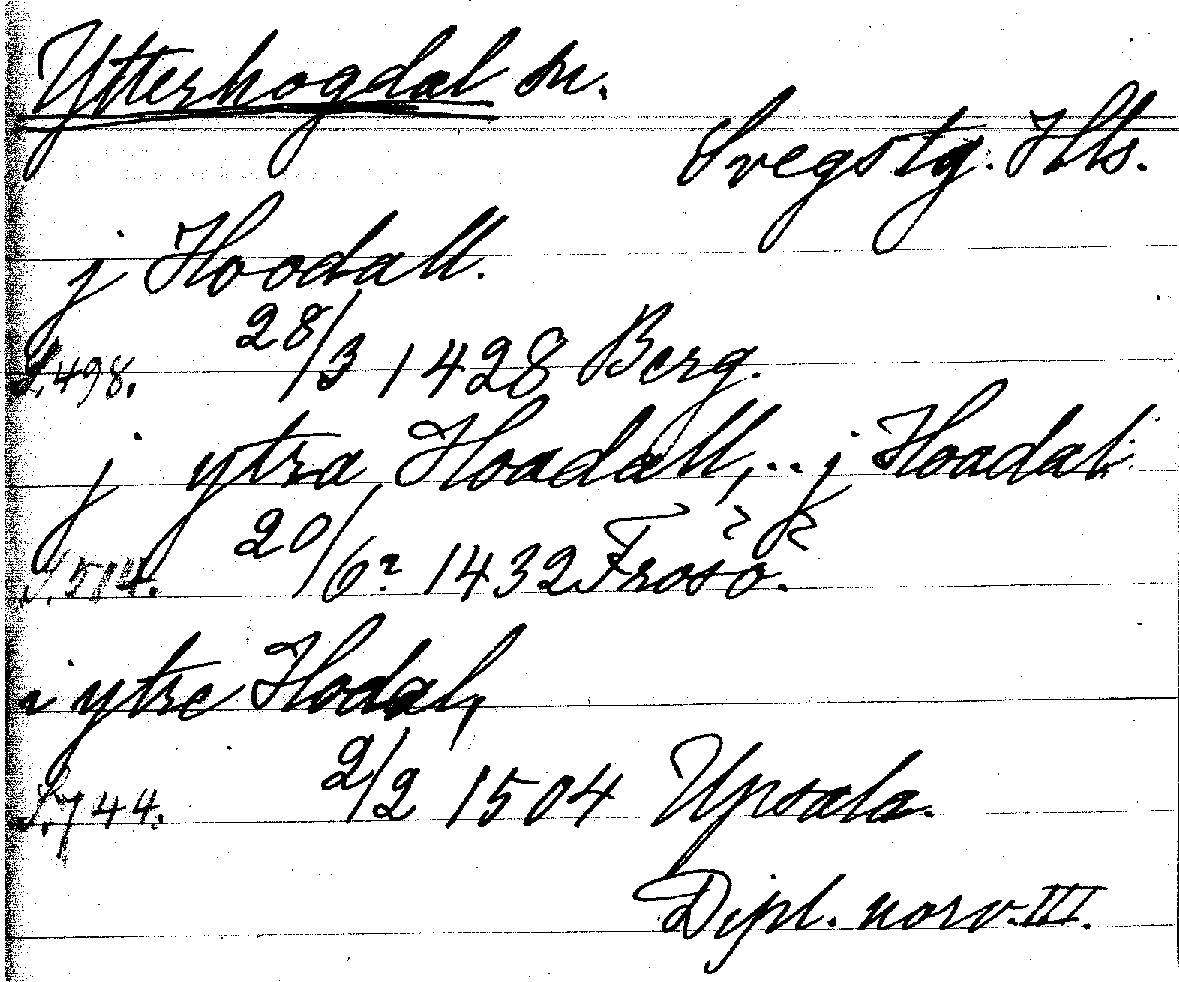 Ytterhogdal sn.
Svegs tg. Hls.
j Hoodall.
S. 498. 28/3 1428 Berg.
j ytra Hoadall, .. j Hoadal
S. 514. 20/6? 1432 Frösö.
i ytre Hodal,
S. 744. 2/2 1504 Upsala.
Dipl. norv. III.